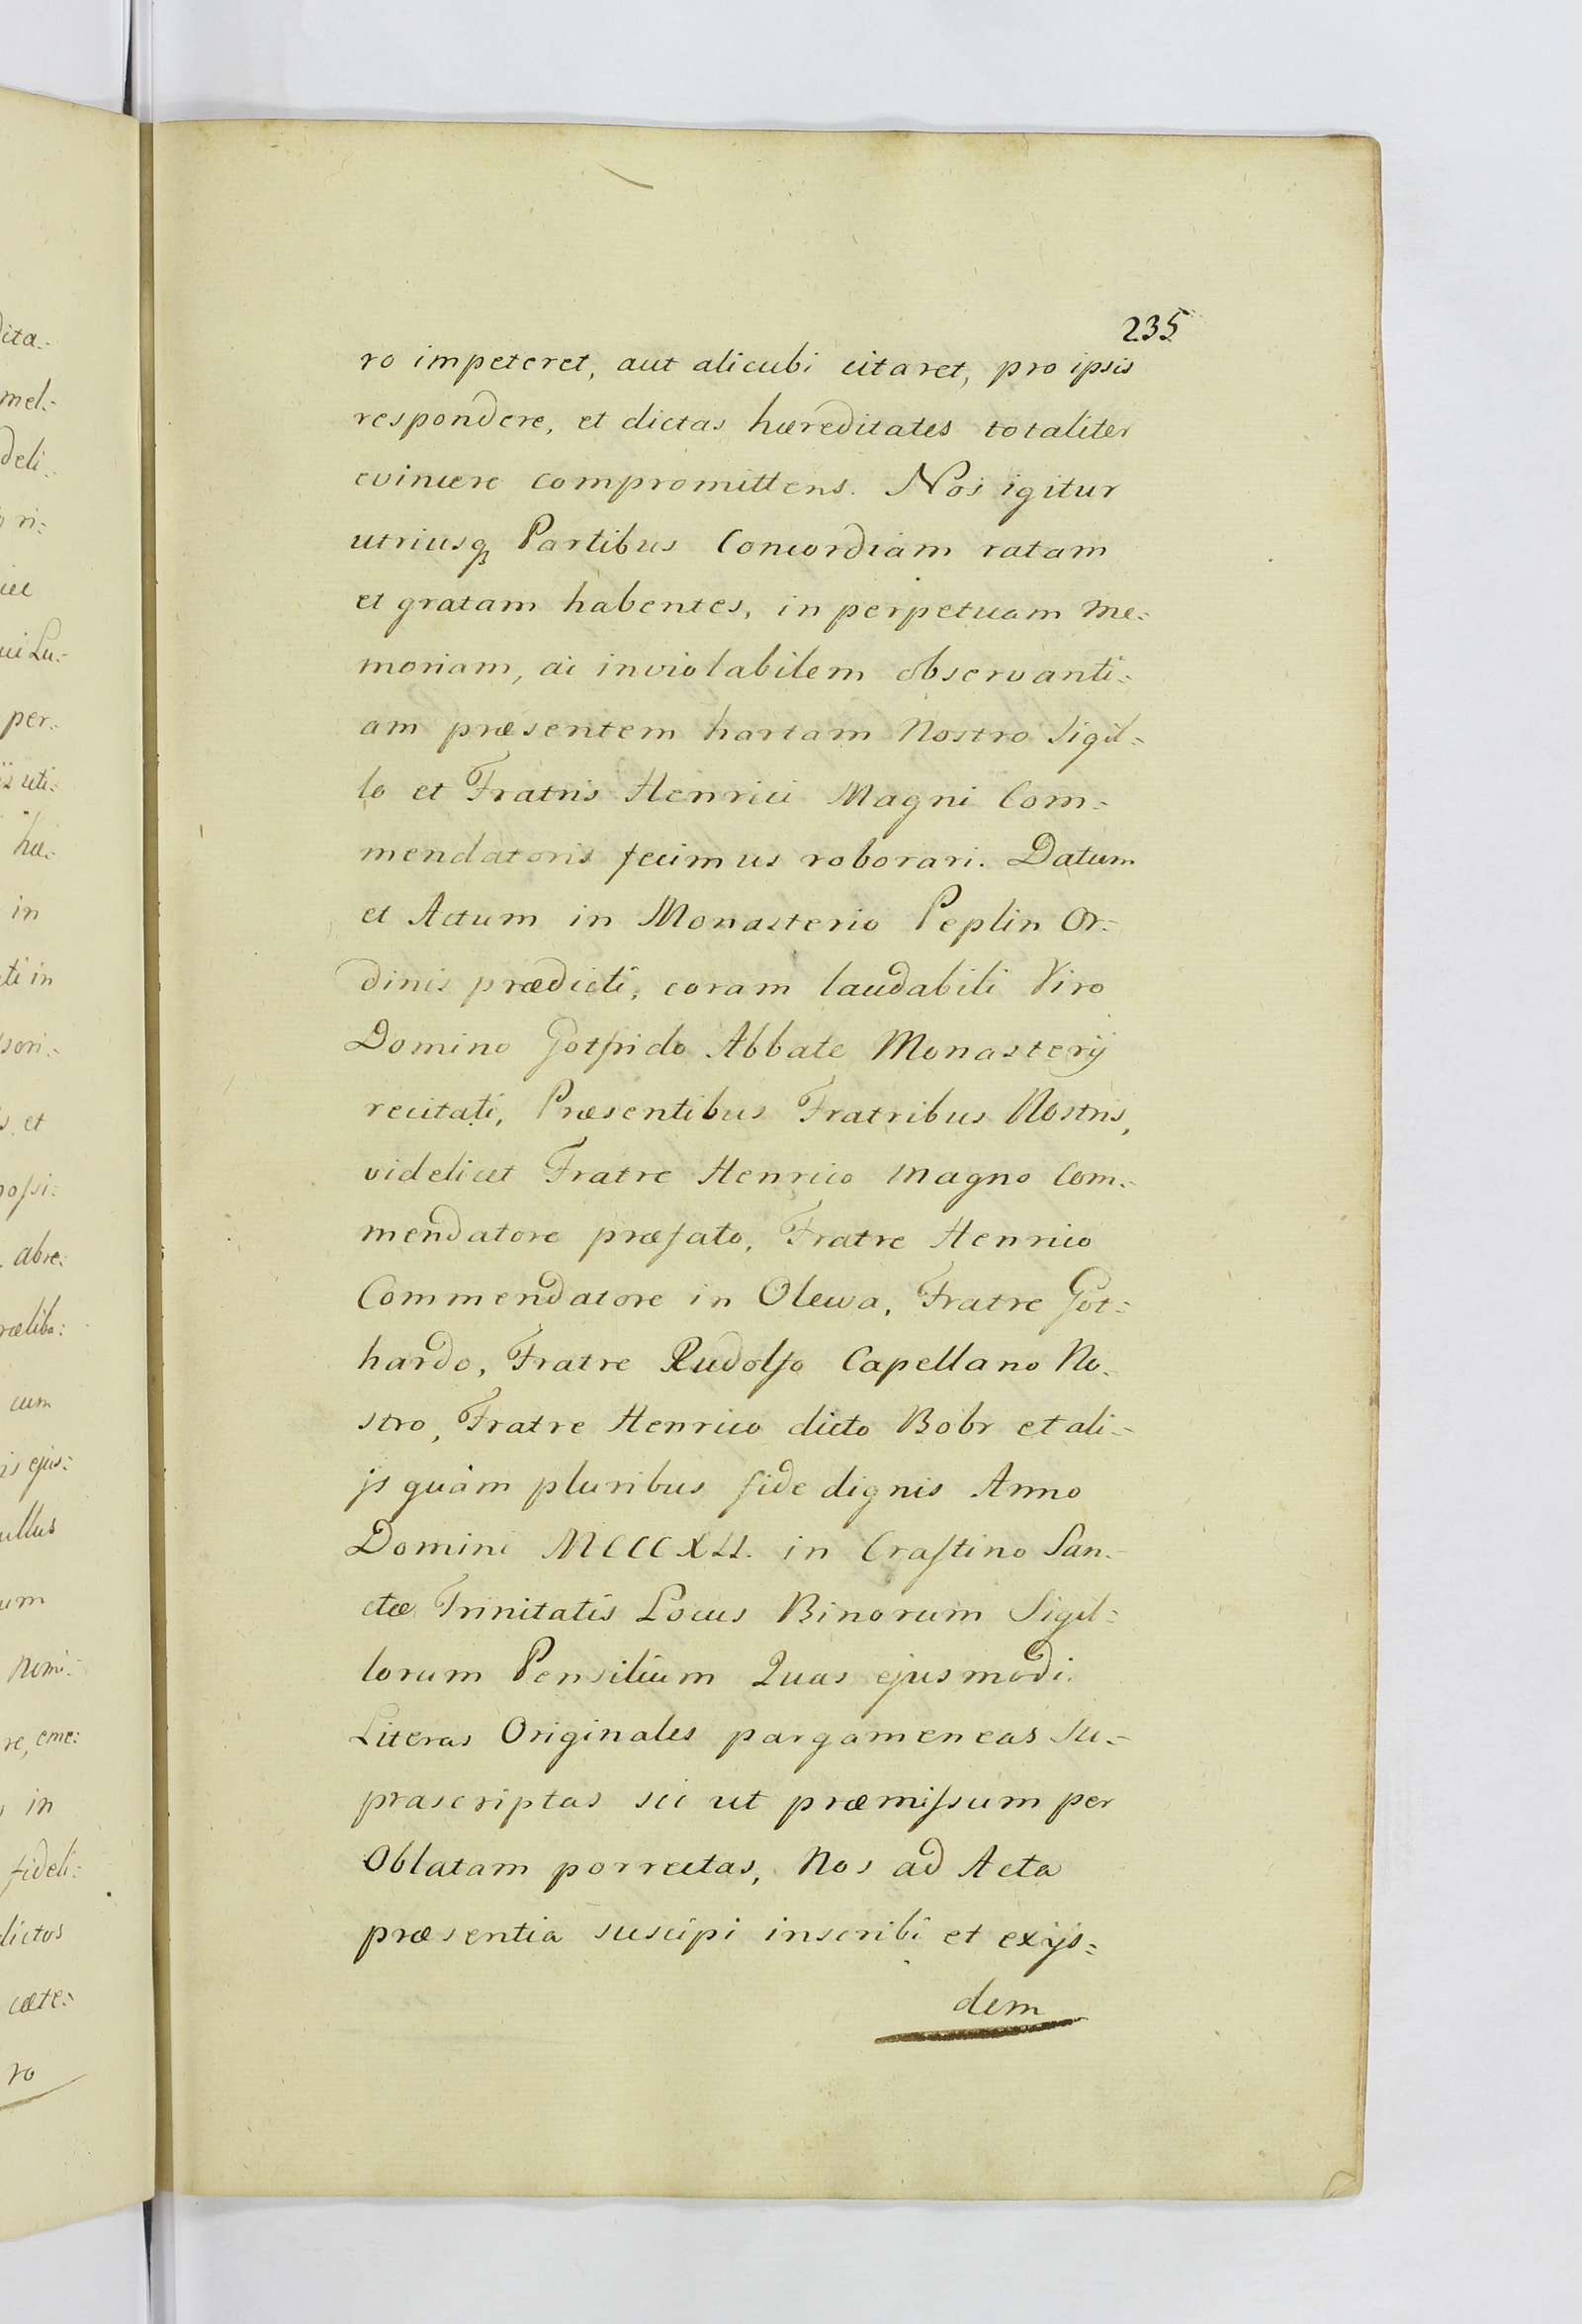 235
ro impeteret, aut alicubi citaret, pro ipsis
respondere, et dictas hæreditates totaliter
evincere compromittens. Nos igitur
utriusq Partibus Concordiam ratam
et gratam habentes, in perpetuam me:
moriam, ac inviolabilem observanti:
am præsentem hartam Nostro Sigil:
lo et Fratris Henrici Magni Com:
mendatoris fecimus roborari. Datum
et Actum in Monasterio Peplin Or:
dinis prædicti, coram laudabili Viro
Domino Gotfrido Abbate Monasterij
recitati, Præsentibus Fratribus Nostris,
videlicet Fratre Henrico Magno Com:
mendatore præfato, Fratre Henrico
Commendatore in Olewa, Fratre Got:
hardo, Fratre Rudolfo Capellano No:
stro, Fratre Henrico dicto Bobr et ali:
js quàm pluribus fide dignis Anno
Domini MCCCXLI. in Crastino San:
ctæ Trinitatis Locus Binorum Sigil:
lorum Pensilium Quas ejusmodi.
Literas Originales pargameneas Su:
prascriptas sic ut præmissum per
Oblatam porrectas, Nos ad Acta
præsentia suscipi inscribi et exijs:
dem